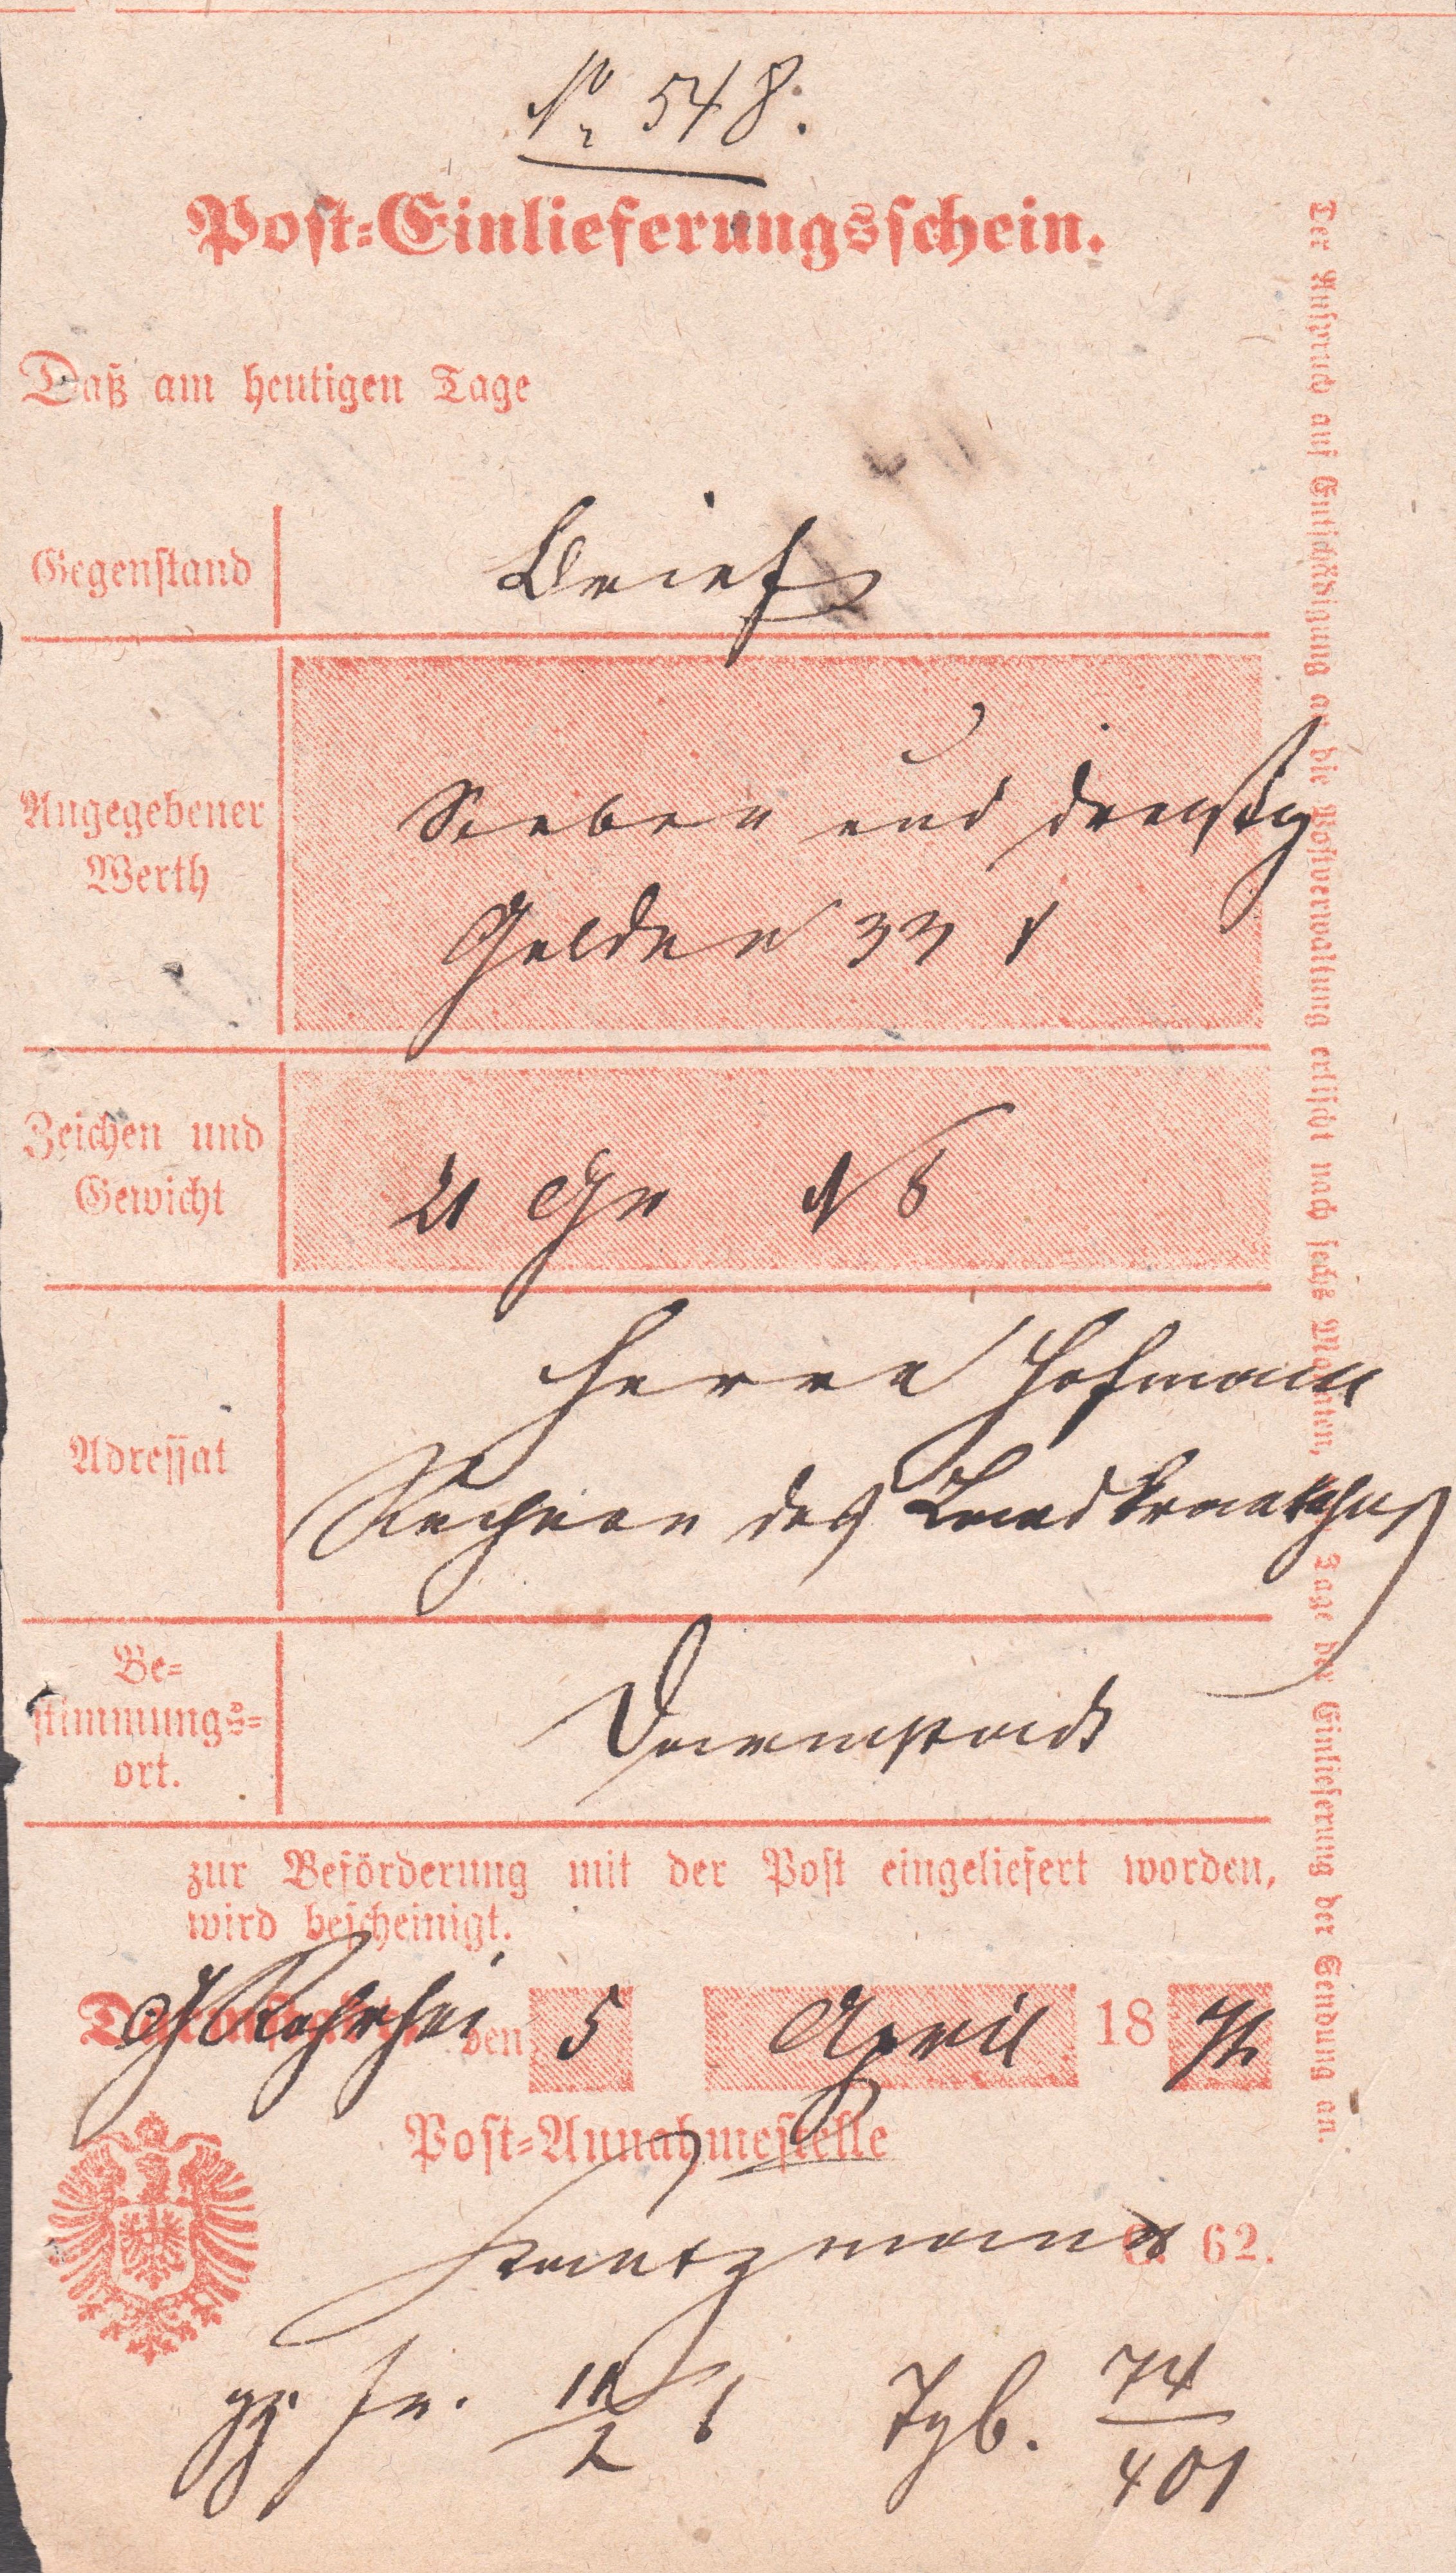 No 548.
Post-Einlieferungsschein.
Daß am heutigen Tage
Gegenstand
Brief
Angegebener
Werth
Sieben und dreißig
Gulden 33
Zeichen und
Gewicht
21 Gr
Adressat
Herrn Hofmann
Rechner des
Be-
stimmungs-
ort.
Darmstadt
zur Beförderung mit der Post eingeliefert worden,
wird bescheinigt.
den 5 April 18
Post-Annahmestelle
62.
Tgb. 74
401
Der Anspruch auf Entschädigung an die Postverwaltung erlischt nach sechs Monaten, Tage der Einlieferung der Sendung an.